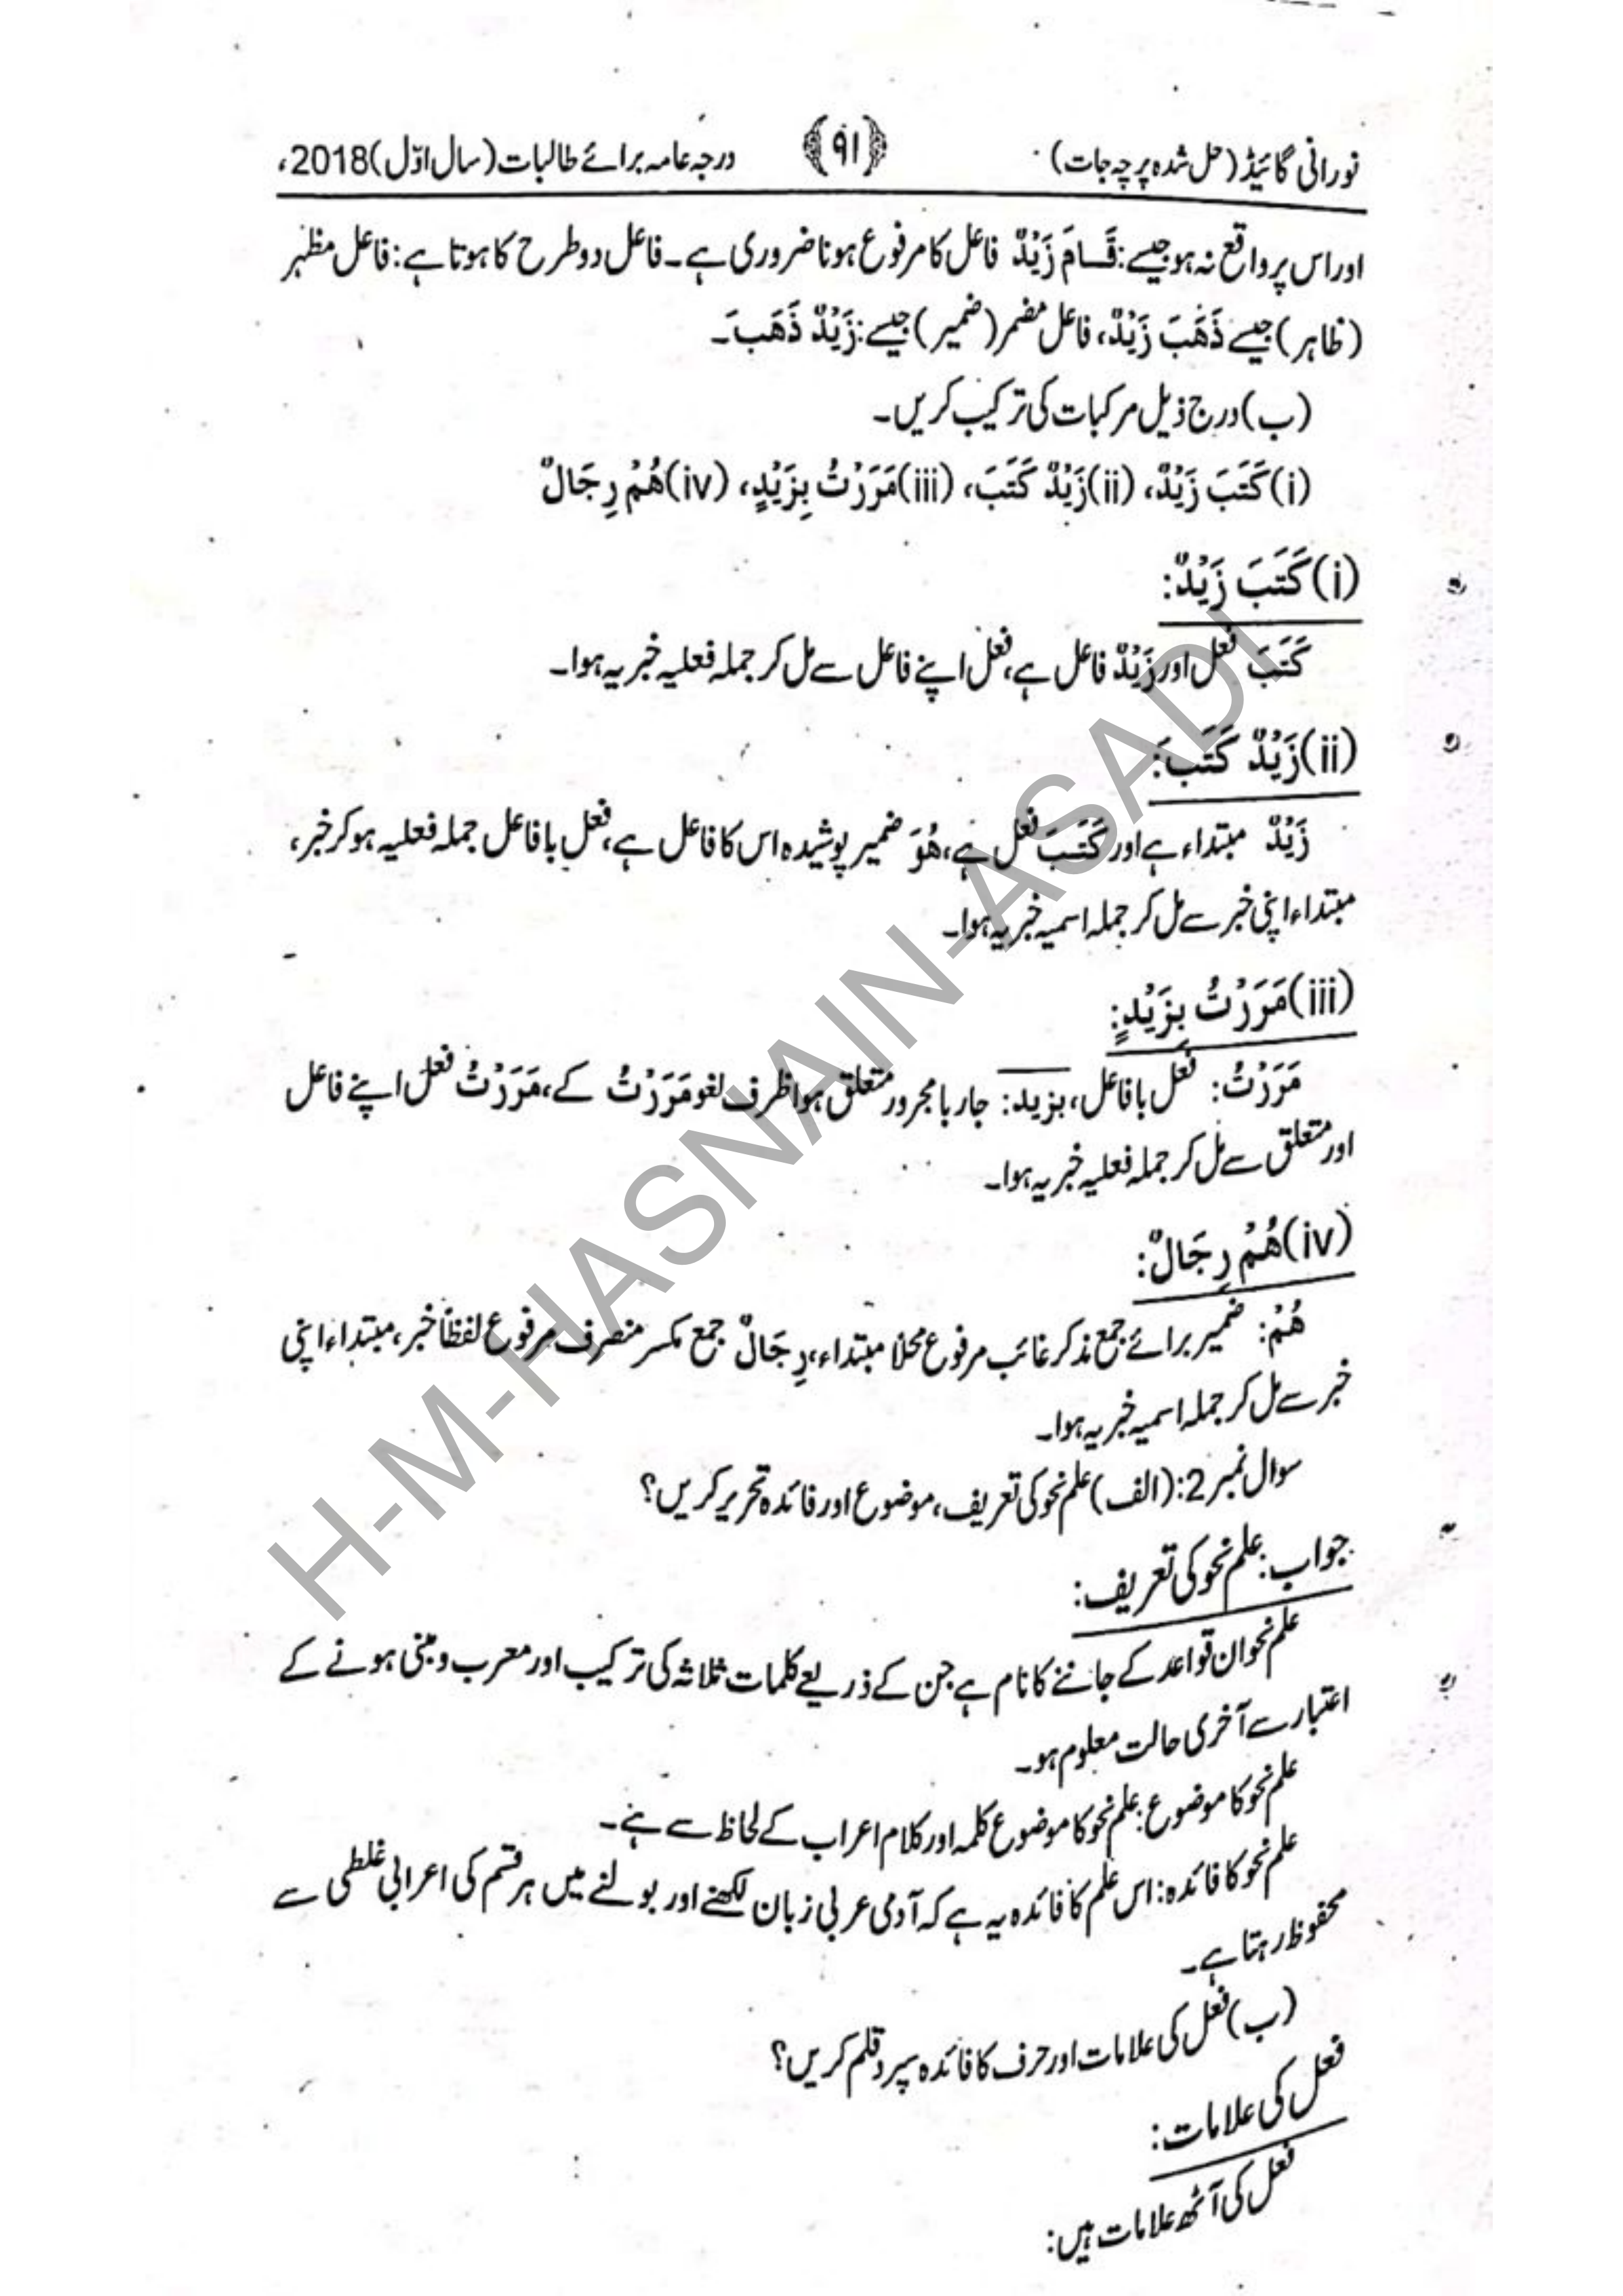 نورانی گائیڈ (حل شدہ پرچہ جات)
﴿۹۱﴾
درجہ عامہ برائے طالبات (سال اوّل) 2018ء
اور اس پر واقع نہ ہو جیسے: قَامَ زَیْدٌ فاعل کا مرفوع ہونا ضروری ہے۔ فاعل دو طرح کا ہوتا ہے: فاعل مظہر
(ظاہر) جیسے ذَھَبَ زَیْدٌ، فاعل مضمر (ضمیر) جیسے: زَیْدٌ ذَھَبَ۔
(ب) درج ذیل مرکبات کی ترکیب کریں۔
(i) كَتَبَ زَيْدٌ، (ii) زَيْدٌ كَتَبَ، (iii) مَرَرْتُ بِزَيْدٍ، (iv) هُمْ رِجَالٌ
(i) كَتَبَ زَيْدٌ:
كَتَبَ فعل اور زَيْدٌ فاعل ہے، فعل اپنے فاعل سے مل کر جملہ فعلیہ خبریہ ہوا۔
(ii) زَيْدٌ كَتَبَ:
زَيْدٌ مبتداء ہے اور كَتَبَ فعل ہے، هُوَ ضمیر پوشیدہ اس کا فاعل ہے، فعل با فاعل جملہ فعلیہ ہو کر خبر،
مبتداء اپنی خبر سے مل کر جملہ اسمیہ خبریہ ہوا۔
(iii) مَرَرْتُ بِزَيْدٍ:
مَرَرْتُ: فعل با فاعل، بزید: جار با مجرور متعلق ہوا ظرف لغو مَرَرْتُ کے، مَرَرْتُ فعل اپنے فاعل
اور متعلق سے مل کر جملہ فعلیہ خبریہ ہوا۔
(iv) هُمْ رِجَالٌ:
هُمْ: ضمیر برائے جمع مذکر غائب مرفوع محلاً مبتداء، رِجَالٌ جمع مکسر منصرف مرفوع لفظاً خبر، مبتداء اپنی
خبر سے مل کر جملہ اسمیہ خبریہ ہوا۔
سوال نمبر 2: (الف) علم نحو کی تعریف، موضوع اور فائدہ تحریر کریں؟
جواب: علم نحو کی تعریف:
علم نحو ان قواعد کے جاننے کا نام ہے جن کے ذریعے کلمات ثلاثہ کی ترکیب اور معرب و مبنی ہونے کے
اعتبار سے آخری حالت معلوم ہو۔
علم نحو کا موضوع: علم نحو کا موضوع کلمہ اور کلام اعراب کے لحاظ سے ہے۔
علم نحو کا فائدہ: اس علم کا فائدہ یہ ہے کہ آدمی عربی زبان لکھنے اور بولنے میں ہر قسم کی اعرابی غلطی سے
محفوظ رہتا ہے۔
(ب) فعل کی علامات اور حرف کا فائدہ سپرد قلم کریں؟
فعل کی علامات:
فعل کی آٹھ علامات ہیں:
H-M-HASNAIN-ASADI